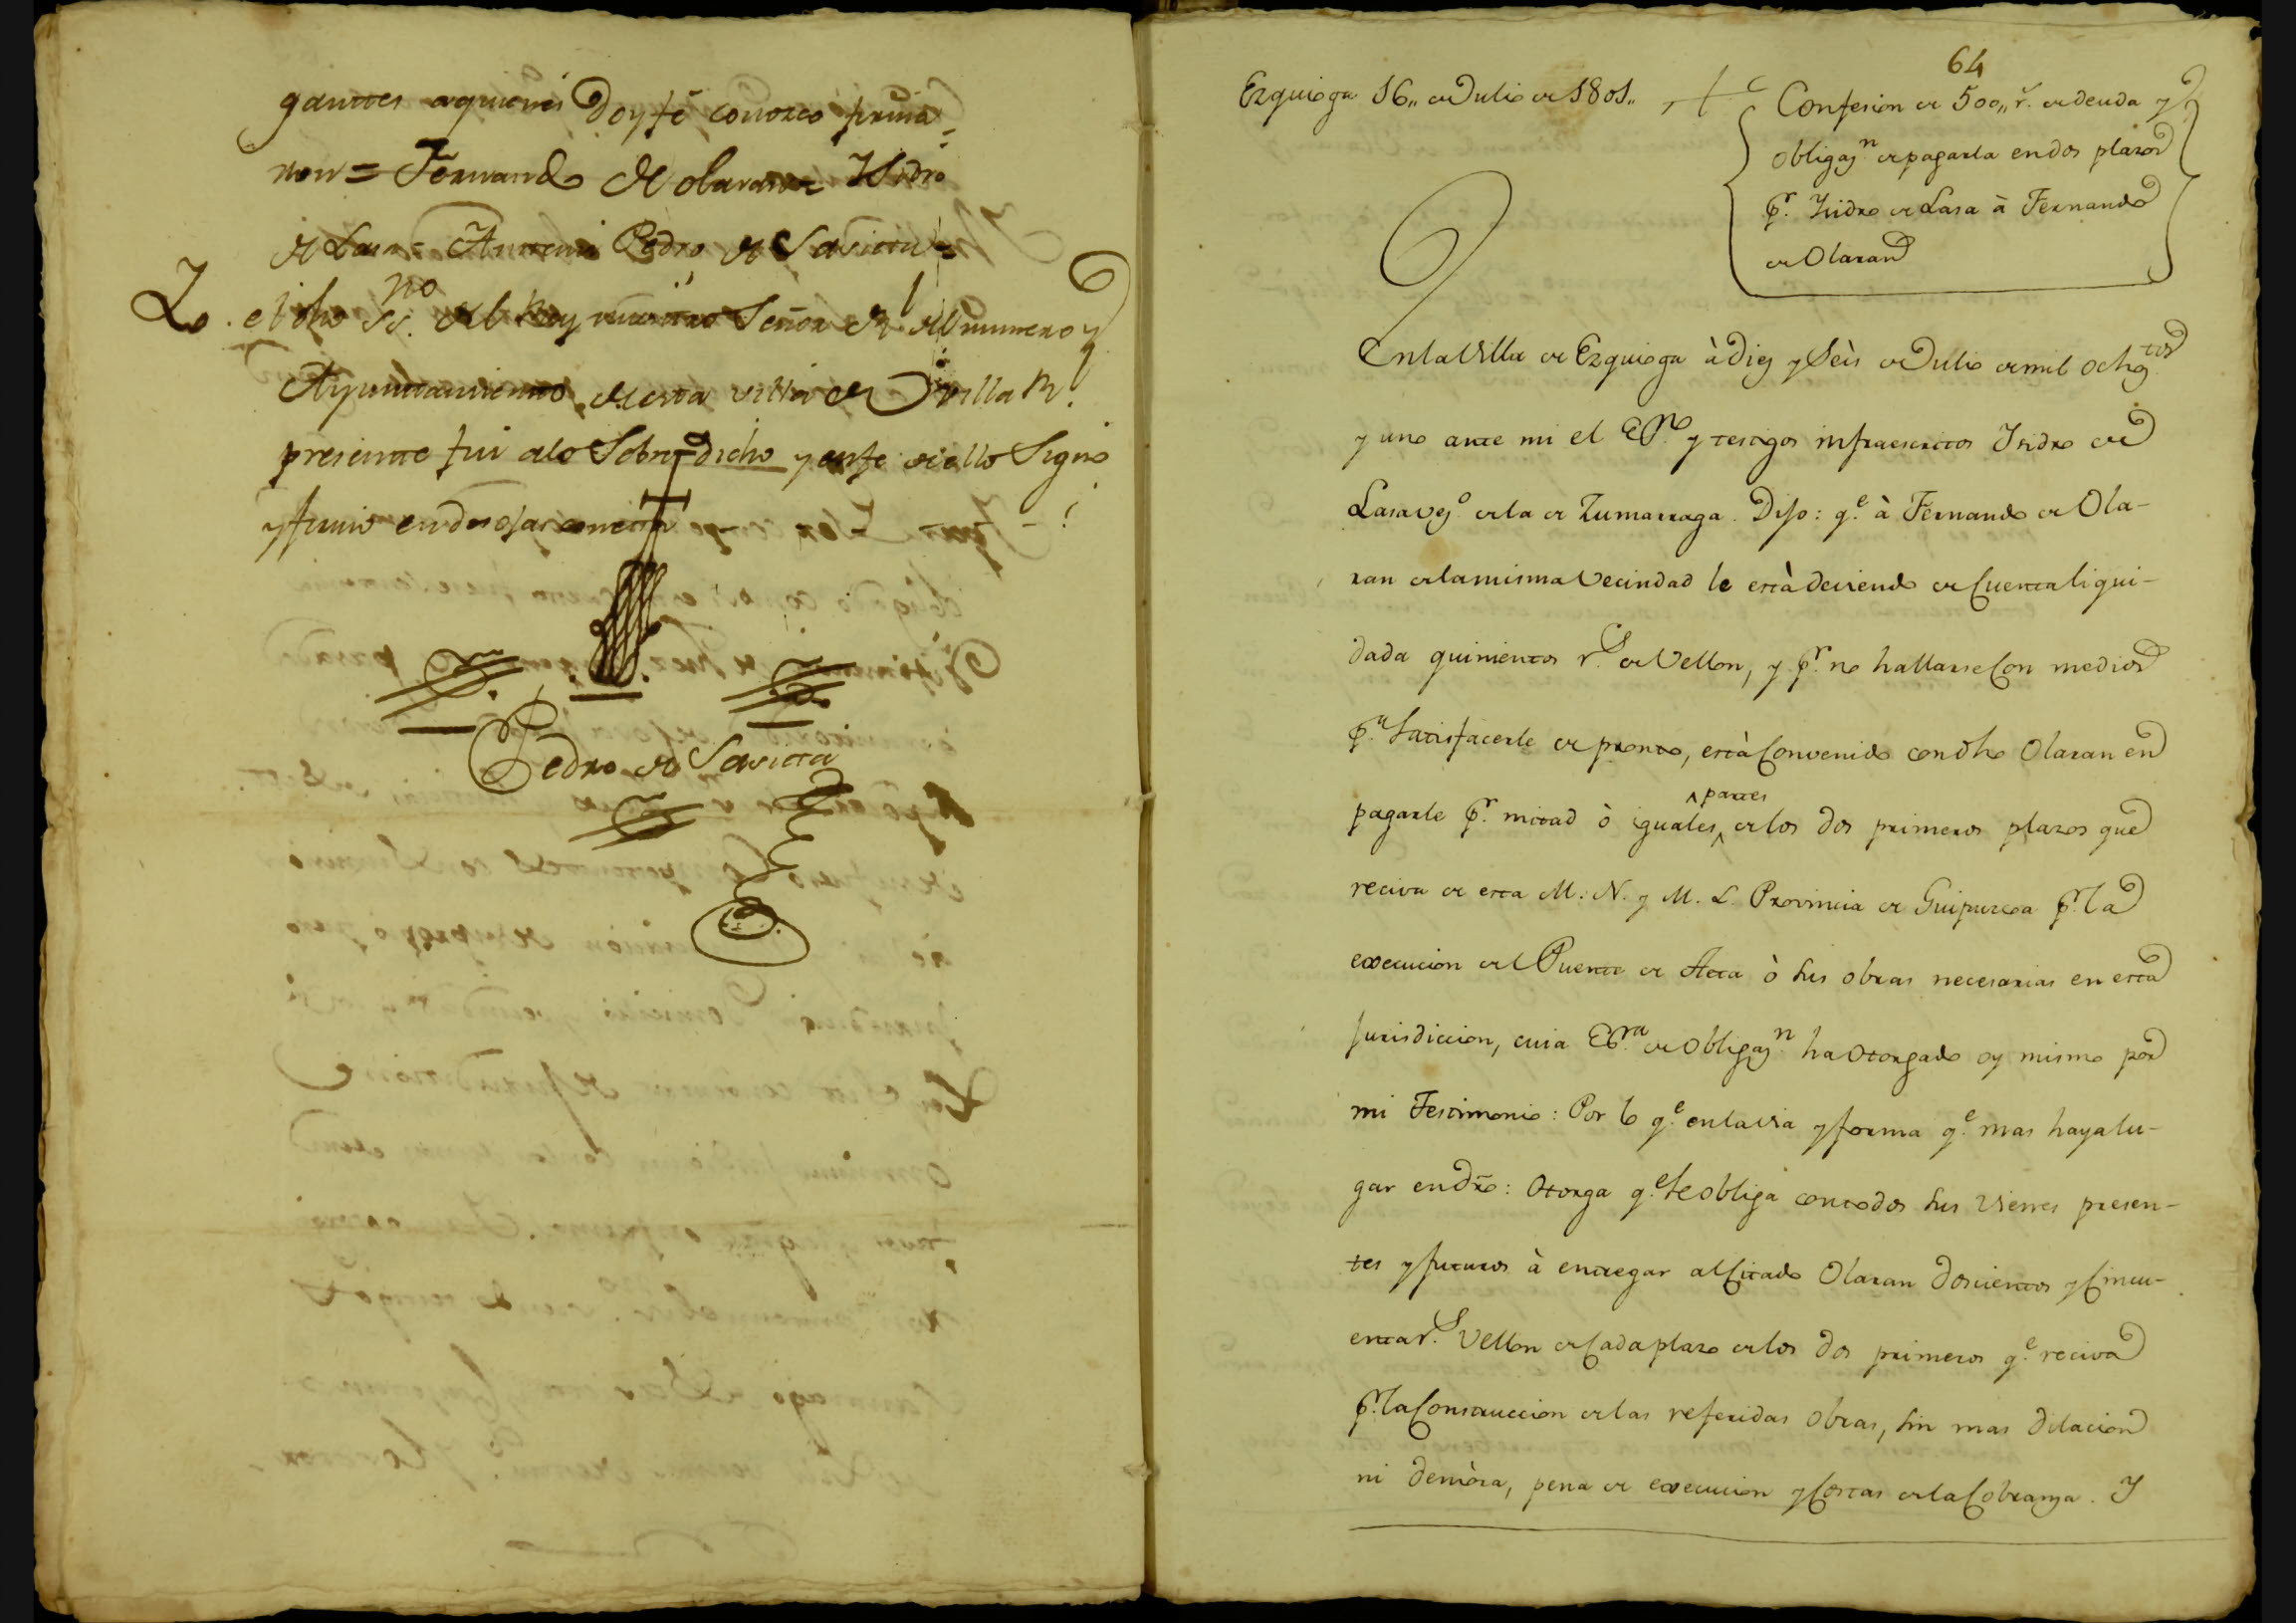 gantes aquienes Doy fé conozco firma
ron = Fernando de olaran = Ysidro
de Lasa = Antemi Pedro de Savietta =
Yo el dho ss.no del Rey nuestro Señor Rl del numero y
Ayuntamiento de esta villa de Villa Rl
presente fui alo Sobre dicho y enfe de ello Signo
y firmo en dos ojas con esta
Pedro de Savietta
64
Ezquioga 16,, de Julio de 1801,,
Confesion de 500,, r.s de deuda y
obligaz.n de pagarla en dos plazos
p.r Isidro de Lasa à Fernando
de Olaran
En la Villa de Ezquioga à Diez y Seis de Julio de mil ochoz.tos
y uno ante mi el Es.no y testigos infraescritos Isidro de
Lasa vez.o de la de Zumarraga. Dijo: q.e à Fernando de Ola-
ran de la misma Vecindad le està deviendo de Cuenta liqui-
dada quinientos r.s de Vellon, y p.r no hallarse Con medios
p.a Satisfacerle de pronto, està Convenido con dho Olaran en
pagarle p.r mitad ò iguales partes de los dos primeros plazos que
reciva de esta M. N. y M. L. Provincia de Guipuzcoa p.r la
execucion del Puente de Atea ò sus obras necesarias en esta
Jurisdiccion, cuia Es.ra de Obligaz.n ha Otorgado oy mismo por
mi Testimonio: Por lo q.e en la via y forma q.e mas haya lu-
gar en dro: Otorga q.e se obliga con todos sus vienes presen-
tes y futuros à entregar al Citado Olaran Doscientos y Cincu-
enta r.s Vellon de Cada plazo de los dos primeros q.e reciva
p.r la Construccion de las referidas obras, sin mas dilacion
ni demòra, pena de execucion y Costas de la Cobranza. Y